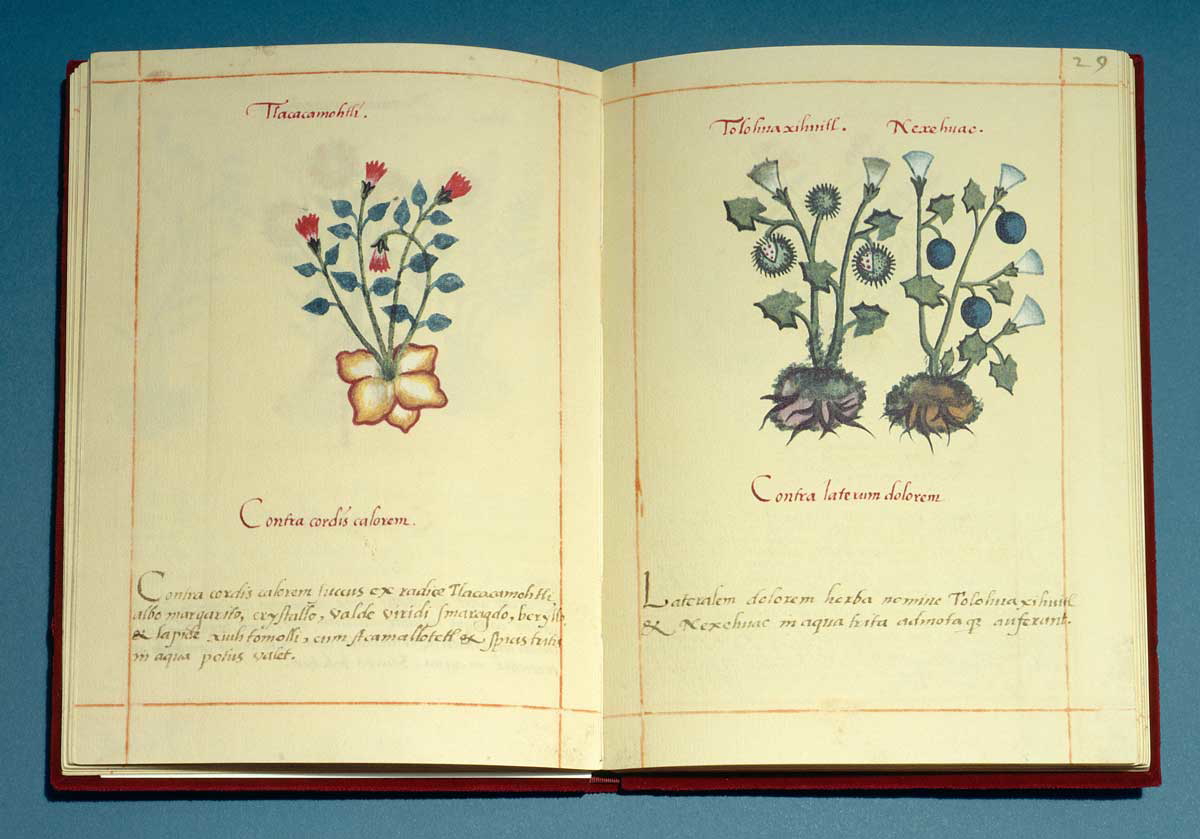 Tlacacamohtli.
Contra cordis calorem.
Contra cordis calorem succus ex radice Tlacacamohtli,
albo margarito, crystallo, valde viridi smaragdo, beryllo
& lapide xiuhtomolli, cum & spias tritis
in aqua potus valet.
29
Tolohuaxihuitl. Nexehuac.
Contra laterum dolorem
Lateralem dolorem herba nomine Tolohuaxihuitl
& Nexehuac in aqua trita admotaq̨ auferunt.